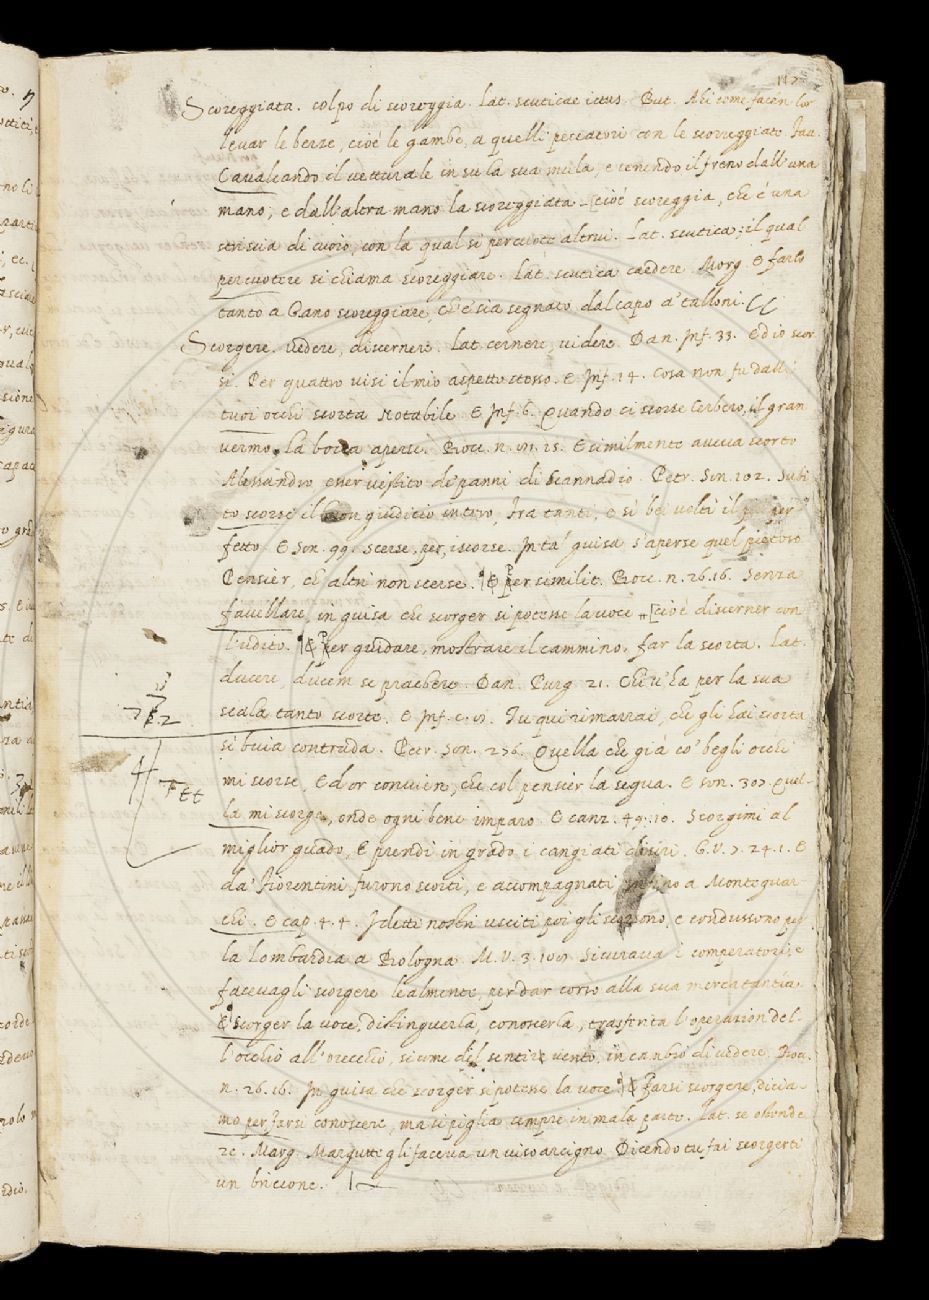 117
Scoreggiata. colpo di scoreggia. Lat. scuticae ictus. But. Ahi come facèn lor
levar le berze, cioè le gambe, a quelli peccatori con le scorreggiate. Fav.
Cavalcando il vetturale in su la sua mula, e tenendo il freno dall'una
mano, e dall'altra mano la scoreggiata [cioè scoreggia, che è una
striscia di cuoio, con la qual si percuote altrui. Lat. scutica; il qual
percuotere si chiama scoreggiare. Lat. scutica caedere. Morg. E farlo
tanto a Gano scoreggiare, ch'e' sia segnato dal capo a' talloni.
Scorgere. vedere, discernere. Lat. cernere, videre. Dan. Inf. 33. Ed io scor
si. Per quattro visi il mio aspetto stesso. E Inf. 14. Cosa non fu dalli
tuoi occhi scorta Notabile. E Inf. 6. Quando ci scorse Cerbero, il gran
vermo, la bocca aperse. Bocc. n. 25. E similmente aveva scorto
Alessandro esser vestito de' panni di Scannadio. Petr. Son. 202. Subi
to scorse il buon giudicio intero, Fra tanti, e sì bei volti il più per
fetto. E Son. 99. scerse, per, iscorse. In ta' guisa s'aperse quel pietoso
Pensier, ch'altri non scerse. E Per similit. Bocc. n. 26.16. Senza
favellare, in guisa che scorger si potesse la voce [cioè discerner con
l'udito. E Per guidare, mostrare il cammino. far la scorta. Lat.
ducere, ducem se praebere. Dan. Purg. 21. Chi v'ha per la sua
scala tanto scorte. E Inf. c. Tu qui rimarrai, che gli hai scorta
si buia contrada. Petr. Son. 236. Quella che già co' begli occhi
mi scorse, Ed or convien, che col pensier la segua. E Son. 307. Quel-
la mi scorge, onde ogni bene imparo. E canz. 49.10. Scorgimi al
miglior guado, E prendi in grado i cangiati disiri. G.V. 7. 24.1. E
da' Fiorentini furono scorti, e accompagnati infino a Monteguar
chi. E cap. 4.4. I detti nostri usciti poi gli scorsono, e condussono per
la Lombardia a Bologna. M.V. 3. Sicurava i comperatori, e
facevagli scorgere lealmente, per dar corso alla sua mercatantia.
E scorger la voce, distinguerla, conoscerla, trasferita l'operazion del-
l'occhio all'orecchio, sicome del sentire vento, in cambio di vedere. Bocc.
n. 26.16. In guisa che scorger si potesse la voce. E Farsi scorgere, dicia-
mo per farsi conoscere, ma si piglia sempre in mala parte. Lat. se ostende
re. Marg. Margutte gli faceva un viso arcigno. Dicendo tu fai scorgerti
un briccone.